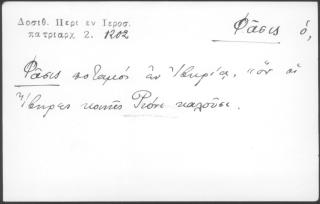 Δοσιθ. Περι εν Ιεροσ.
πατριαρχ 2. 1202
Φᾶσις ὁ,
Φᾶσις ποταμός ἐν Ἰβηρίᾳ, "ὅν οἱ
Ἴβηρες κοινῶς Ριόνι καλοῦσι.